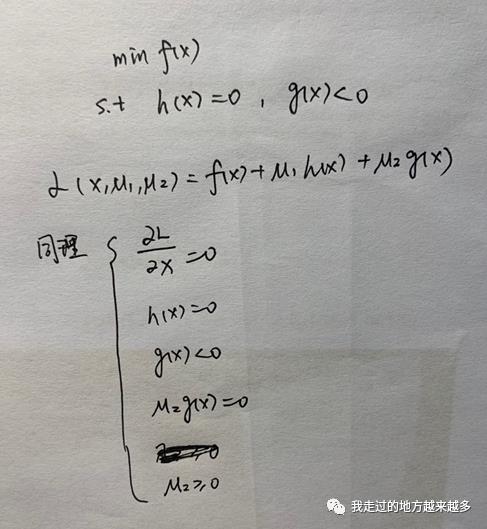 min f(x)
s.t h(x)=0 , g(x)<0
L(x,μ1,μ2)=f(x)+μ1h(x)+μ2g(x)
同理
∂L/∂x=0
h(x)=0
g(x)<0
μ2g(x)=0
μ2≥0
我走过的地方越来越多